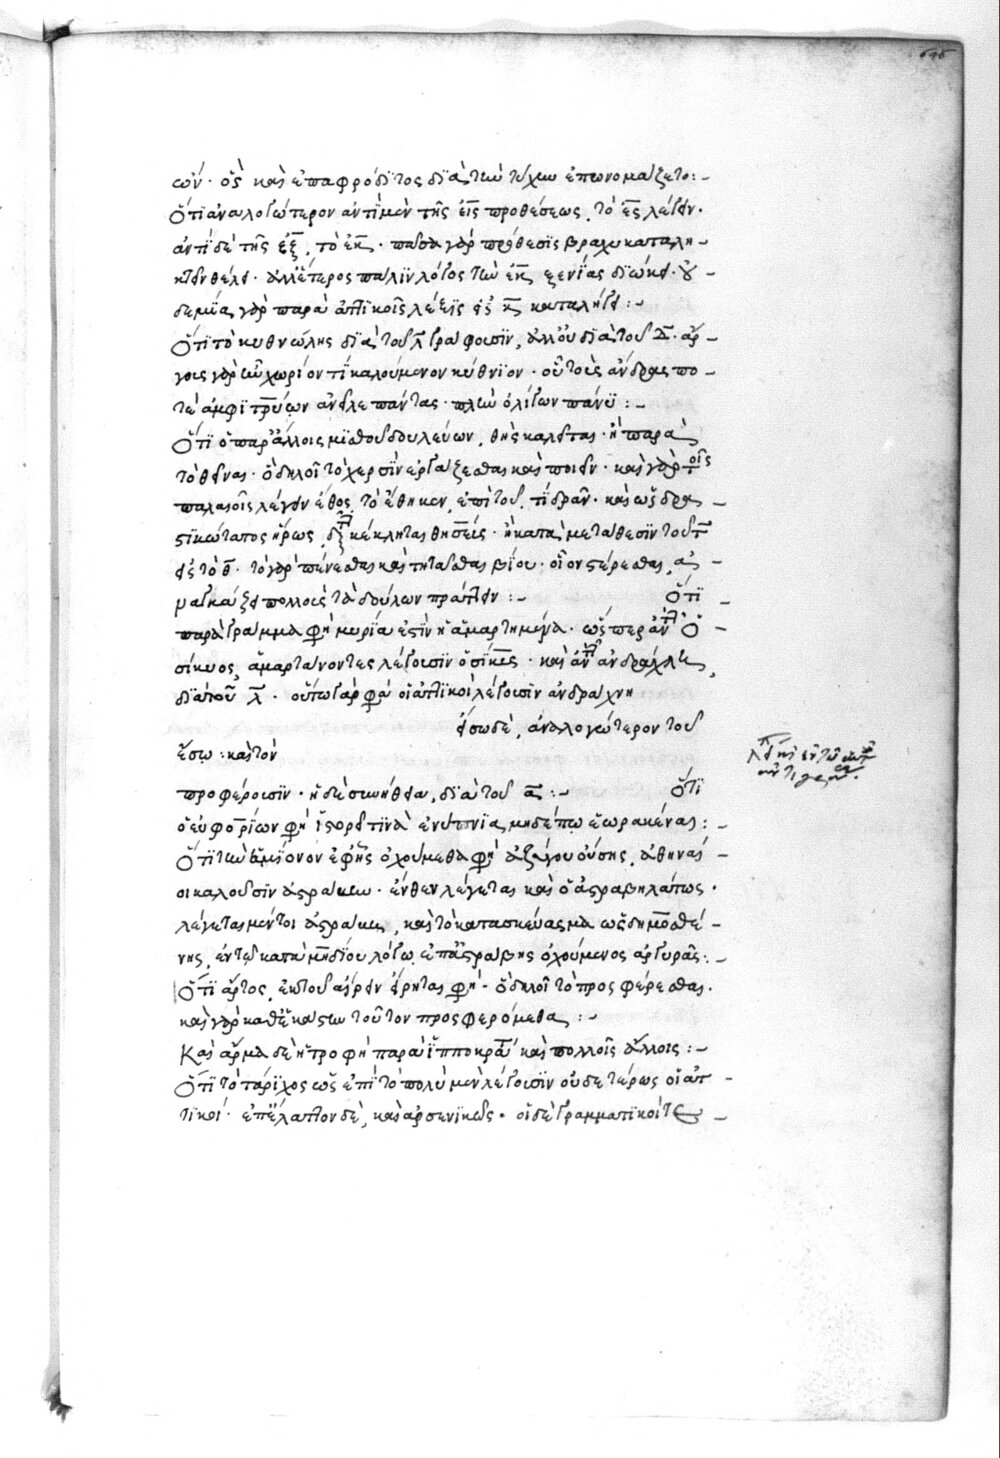 ων· ὃς καὶ ἐπαφρόδιτος διὰ τὴν τύχην ἐπωνομάζετο:-
Ὅτι ἀναλογώτερον ἀντὶ μὲν τῆς εἰς προθέσεως, τὸ ἐς λέγειν·
ἀντὶ δὲ τῆς ἐξ, τὸ ἐκ· πᾶσα γὰρ πρόθεσις βραχυκαταλη-
κτεῖν θέλει· ἀλλ' ἕτερος πάλιν λόγος τὴν ἐκ ξενίας διώκει· οὐ-
δεμία γὰρ παρὰ ἀττικοῖς λέξις εἰς κ καταλήγει:-
Ὅτι τὸ κυθνώλης διὰ τοῦ λ γράφουσιν, ἀλλ' οὐ διὰ τοῦ δ· ἀρ-
γοις γὰρ ἦν χωρίον τι καλούμενον κύθνιον· οὗ τοὺς ἄνδρας πο-
τὲ ἀμφιτρύων ἀνεῖλε πάντας· πλὴν ὀλίγων πάνυ:-
Ὅτι ὁ παρ' ἄλλοις μισθοῦ δουλεύων, θὴς καλεῖται· ἢ παρὰ
τὸ θεῖναι· ὃ δηλοῖ τὸ χερσὶν ἐργάζεσθαι καὶ ποιεῖν· καὶ γὰρ τοῖς
παλαιοῖς λέγειν ἔθος τὸ ἔθηκεν, ἐπὶ τοῦ τι δρᾶν· καὶ ὡς δρα-
στικώτατος ἥρως, κέκληται θησεύς· ἢ κατὰ μετάθεσιν τοῦ τ
εἰς τὸ θ· τὸ γὰρ πένεσθαι καὶ τητᾶσθαι βίου· οἷον στέρεσθαι, ἀ-
ναγκάζει πολλοὺς τὰ δούλων πράττειν:- Ὅτι
παρὰ γράμμα φη μυρία ἐστὶν ἡμαρτημένα· ὥσπερ ἀντὶ ὁ
σίκυος, ἁμαρτάνοντες λέγουσιν ὁ σίκυς· καὶ ἀντὶ ἀνδράχλη,
διὰ τοῦ λ· οὕτω γάρ φα οἱ ἀττικοὶ λέγουσιν ἀνδράχνη
εἴσω δὲ, ἀναλογώτερον τοῦ
ἔσω: καὶ τὸν
προφέρουσιν· ἡ δὲ συνήθεια, διὰ τοῦ α:- Ὅτι
ὁ εὐφορίων φη ἱστορεῖ τινὰ ἐνύπνια μηδέπω ἑωρακέναι:-
Ὅτι τὴν ἡμίονον ἐφ' ἧς ὀχούμεθα φη ἀζύγου οὔσης, ἀθηναῖ-
οι καλοῦσιν ἀστράβην· ἔνθεν λέγεται καὶ ὁ ἀστραβηλάτης·
λέγεται μέντοι ἀστράβη, καὶ τὸ κατασκεύασμα ὡς δημοσθέ-
νης, ἐν τῷ κατὰ μειδίου λόγῳ ἐπ' ἀστράβης ὀχούμενος ἀργυρᾶς:-
Ὅτι ἄρτος, ἐκ τοῦ αἴρειν εἴρηται φη· ὃ δηλοῖ τὸ προσφέρεσθαι·
καὶ γὰρ καθ' ἑκάστην τοῦτον προσφερόμεθα:-
Καὶ ἄρμα δὲ ἡ τροφὴ παρὰ ἱπποκράτει καὶ πολλοῖς ἄλλοις:-
Ὅτι τὸ τάριχος ὡς ἐπὶ τὸ πολὺ μὲν λέγουσιν οὐδετέρως οἱ ἀτ-
τικοί· ἐπ' ἔλαττον δὲ, καὶ ἀρσενικῶς· οἱ δὲ γραμματικοί τε